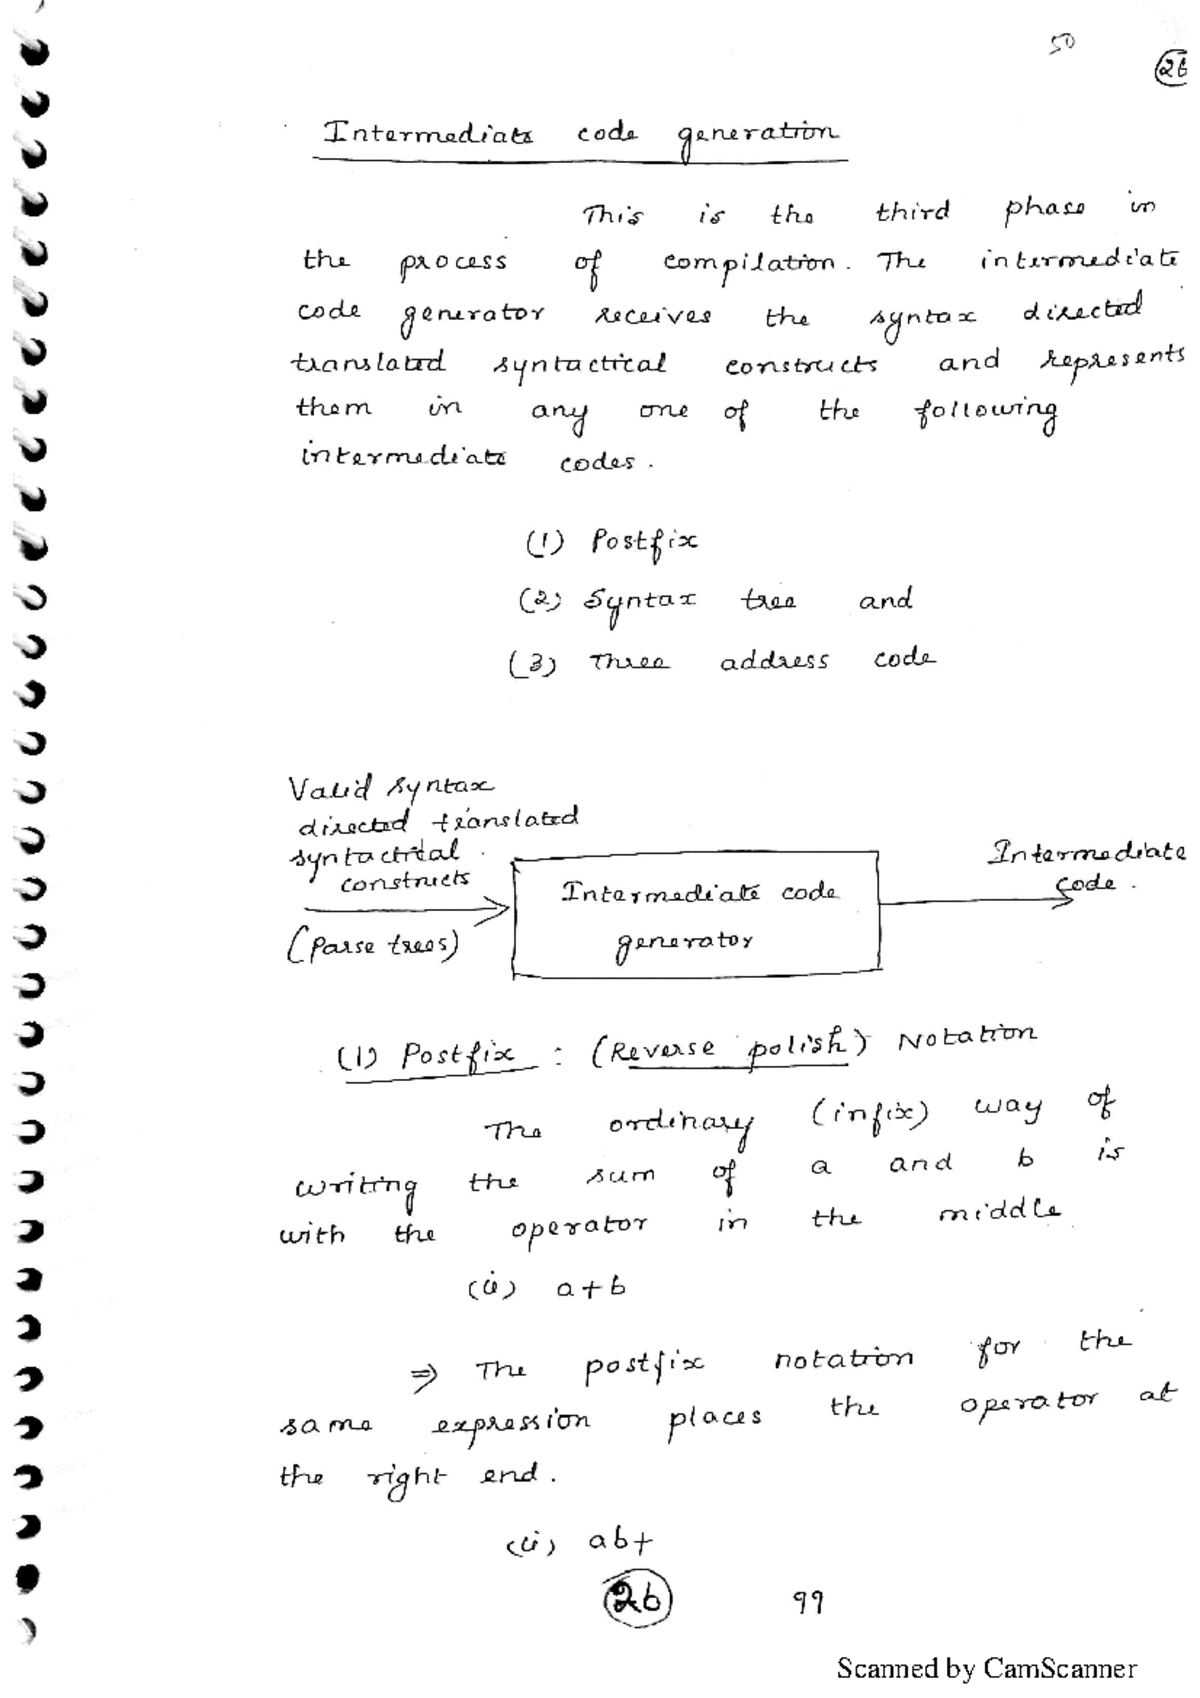 50
26
Intermediate code generation
This is the third phase in
the process of compilation. The intermediate
code generator receives the syntax directed
translated syntactical constructs and represents
them in any one of the following
intermediate codes.
(1) Postfix
(2) Syntax tree and
(3) Three address code
Valid syntax
directed translated
syntactical
constructs
(Parse trees)
Intermediate code
generator
Intermediate
code.
(1) Postfix : (Reverse polish) Notation
The ordinary (infix) way of
writing the sum of a and b is
with the operator in the middle
(ie) a+b
⇒ The postfix notation for the
same expression places the operator at
the right end.
(ie) ab+
26
99
Scanned by CamScanner